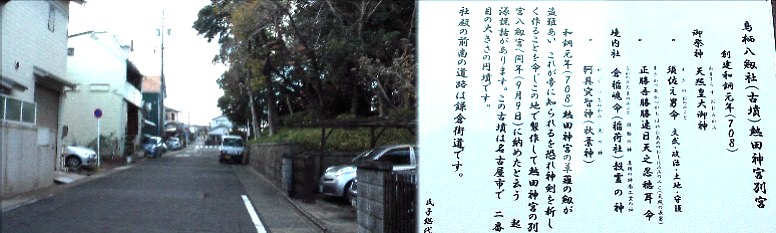 鳥栖八剱社(古墳)熱田神宮別宮
創建和銅元年(708)
御祭神 天照皇大御神
〃 須佐之男命 立武・政治・土地・守護
〃 正勝吾勝勝速日天之忍穂耳命
境内社 倉稲魂命(稲荷社)投霊の神
〃 軻具突智神(秋葉神)
和銅元年(708)熱田神宮の草薙の剱が
盗難あい これが帝に知られるを恐れ神剣を新し
く作ることを命じこの地で製作して熱田神宮の別
宮八剱宮へ同年(9月9日)に納めたと云う 起
源説話があります。この古墳は名古屋市で 二番
目の大きさの円墳です。
社殿の前高の道路は鎌倉街道です。
氏子総代